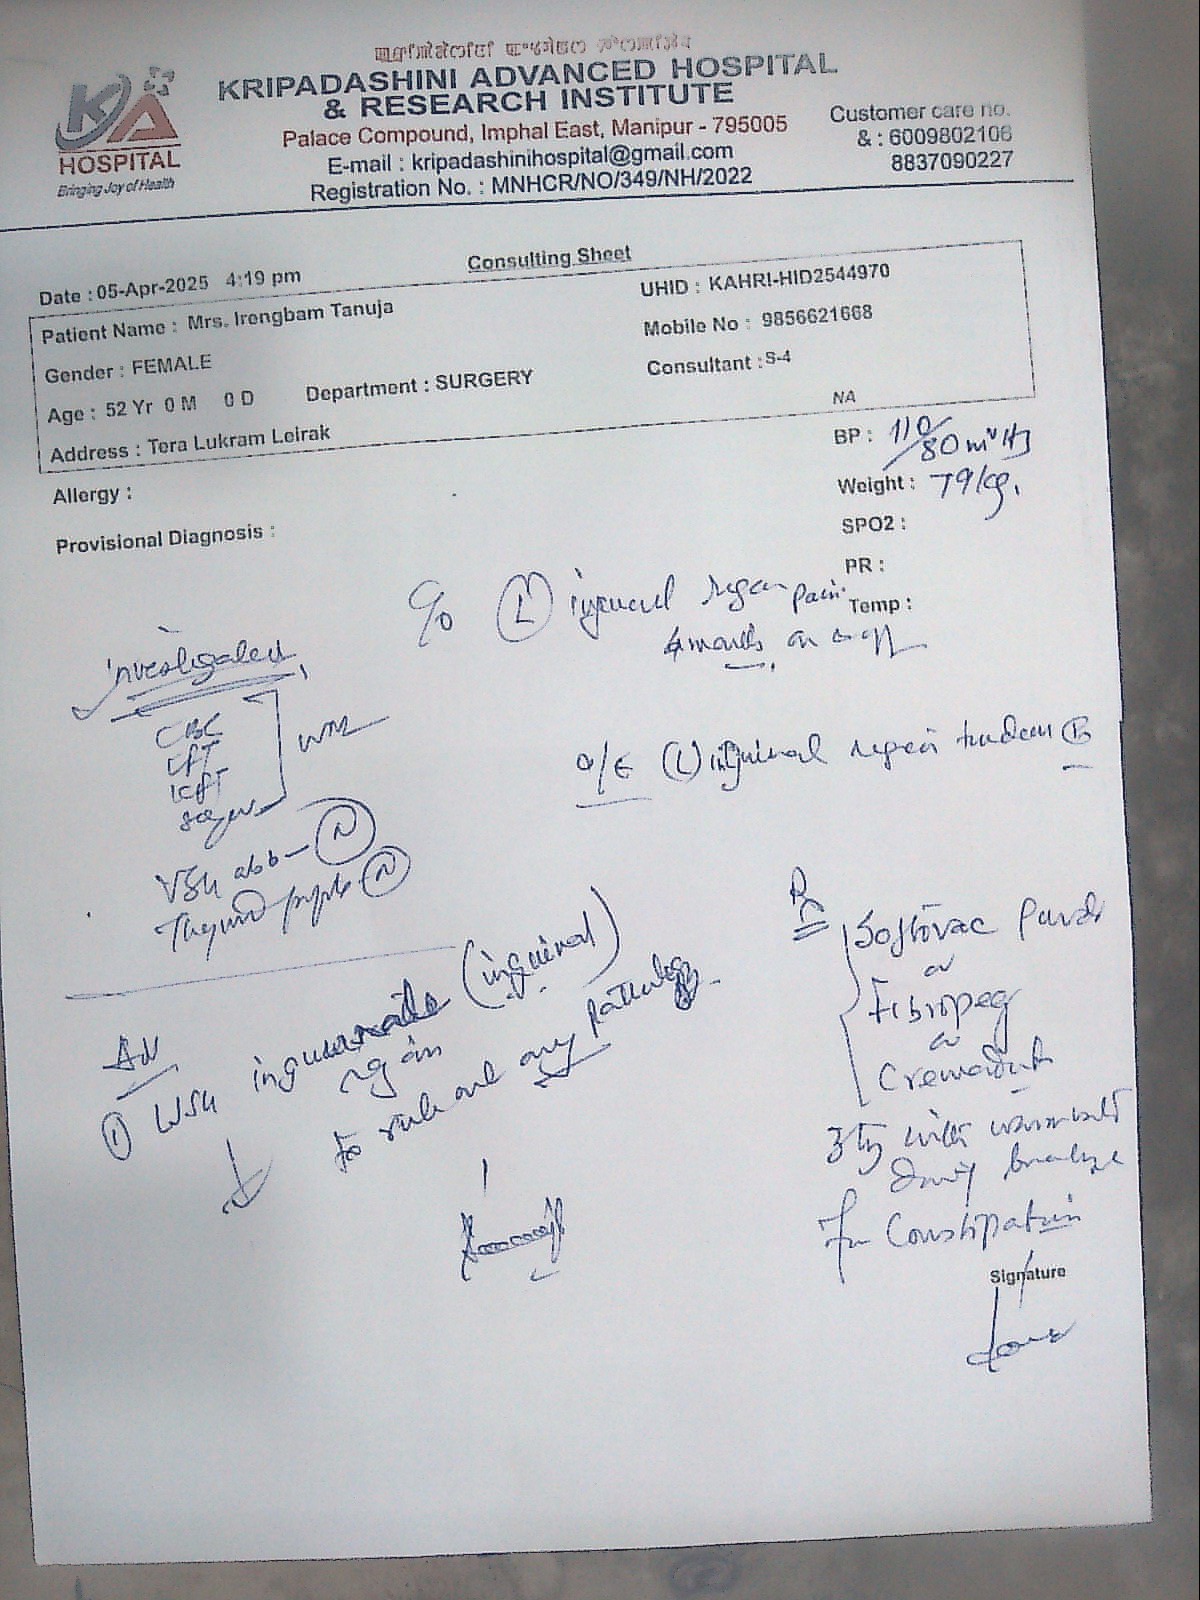 KRIPADASHINI ADVANCED HOSPITAL
& RESEARCH INSTITUTE
Palace Compound, Imphal East, Manipur - 795005
E-mail : kripadashinihospital@gmail.com
Registration No. : MNHCR/NO/349/NH/2022
Customer care no.
& : 6009802106
8837090227
KA
HOSPITAL
Bringing Joy of Health
Consulting Sheet
Date : 05-Apr-2025 4:19 pm
Patient Name : Mrs. Irengbam Tanuja
UHID : KAHRI-HID2544970
Gender : FEMALE
Mobile No : 9856621668
Age : 52 Yr 0 M 0 D Department : SURGERY
Consultant : S-4
Address : Tera Lukram Leirak
NA
Allergy :
BP : 110/80 mmHg
Weight : 79 kg.
Provisional Diagnosis :
SPO2 :
PR :
Temp :
c/o (L) inguinal region pain
4 months, on & off
Investigated
CBC
LFT
KFT
o/E (L) inguinal region
USG abd - (N)
Thyroid profile (N)
Adv
① USG (inguinal)
region
to rule out any pathology
Rx
Softovac
or
Fibropeg
or
Cremadiet
3 with
For Constipation
Signature